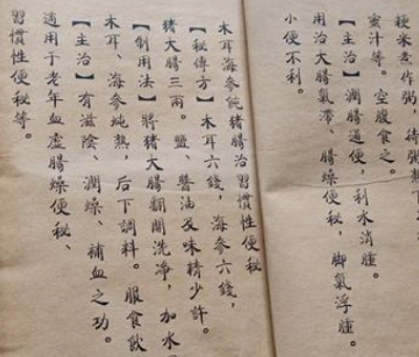 粳米煮作粥，待粥熟下
蜜汁等。空腹食之。
【主治】潤腸通便，利水消腫。
用治大腸氣滯、腸燥便秘，脚氣浮腫。
小便不利。
木耳海參炖猪腸治習慣性便秘
【秘傳方】木耳六錢，海參六錢，
猪大腸三兩。鹽、醬油及味精少許。
【制用法】將猪大腸翻開洗净，加水
木耳、海參炖熟，后下調料。服食飲
【主治】有滋陰、潤燥、補血之功。
適用于老年血虛腸燥便秘、
習慣性便秘等。